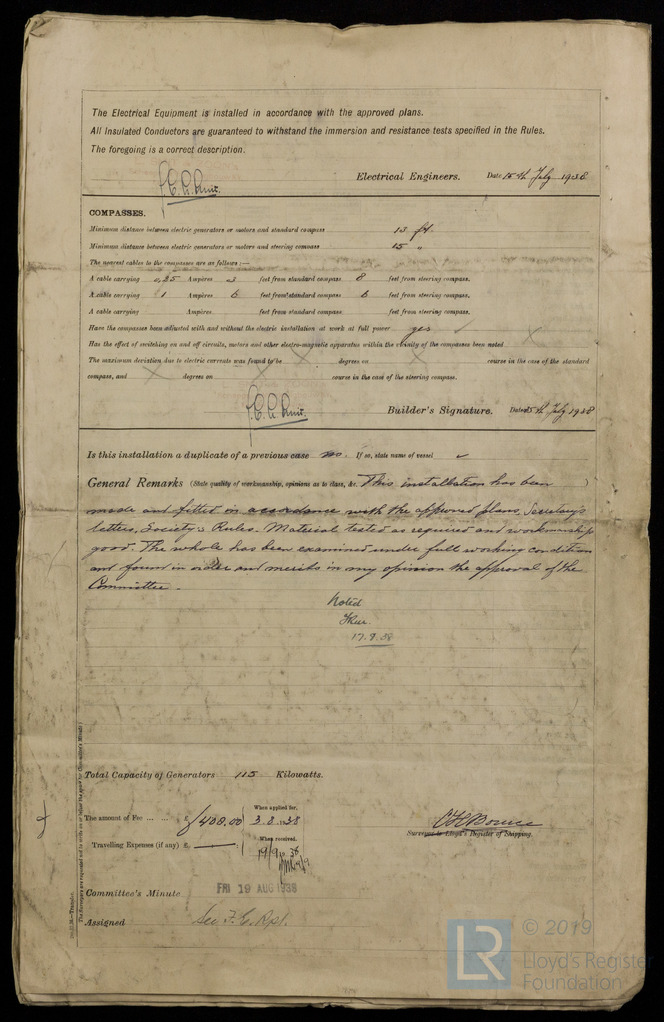 The Electrical Equipment is installed in accordance with the approved plans.
All Insulated Conductors are guaranteed to withstand the immersion and resistance tests specified in the Rules.
The foregoing is a correct description.
Electrical Engineers. Date 15th July 1938
COMPASSES.
Minimum distance between electric generators or motors and standard compass 13 ft.
Minimum distance between electric generators or motors and steering compass 15 "
The nearest cables to the compasses are as follows:—
A cable carrying .25 Ampères 3 feet from standard compass 8 feet from steering compass.
A cable carrying 1 Ampères 6 feet from standard compass 6 feet from steering compass.
A cable carrying Ampères feet from standard compass feet from steering compass.
Have the compasses been adjusted with and without the electric installation at work at full power yes ✓
Has the effect of switching on and off circuits, motors and other electro-magnetic apparatus within the vicinity of the compasses been noted X
The maximum deviation due to electric currents was found to be X degrees on X course in the case of the standard
compass, and X degrees on X X course in the case of the steering compass.
Builder's Signature. Dated 15th July 1938
Is this installation a duplicate of a previous case no. If so, state name of vessel ✓
General Remarks (State quality of workmanship, opinions as to class, &c. This installation has been )
made and fitted in accordance with the approved plans, Secretary's
letters, Society's Rules. Material tested as required and workmanship
good. The whole has been examined under full working condition
and found in order and merits in my opinion the approval of the
Committee.
Noted
17.8.38
Total Capacity of Generators 115 Kilowatts.
The amount of Fee ... ... £ 408.00 When applied for, 3.8.1938
Travelling Expenses (if any) £ — When received,
Surveyor to Lloyd's Register of Shipping.
Committee's Minute FRI 19 AUG 1938
Assigned See F.E. Rpt.
The Surveyors are requested not to write on or below the space for Committee's Minute.
© 2019
LR
Lloyd's Register
Foundation